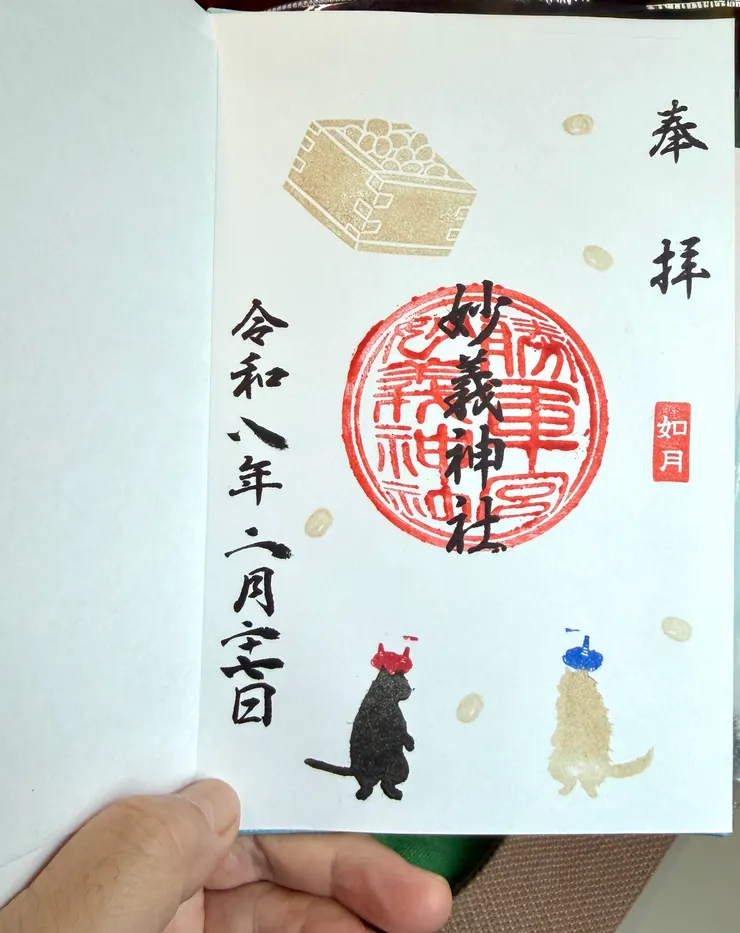 奉拝
如月
勝軍宮
妙義神社
妙義神社
令和八年二月二十七日